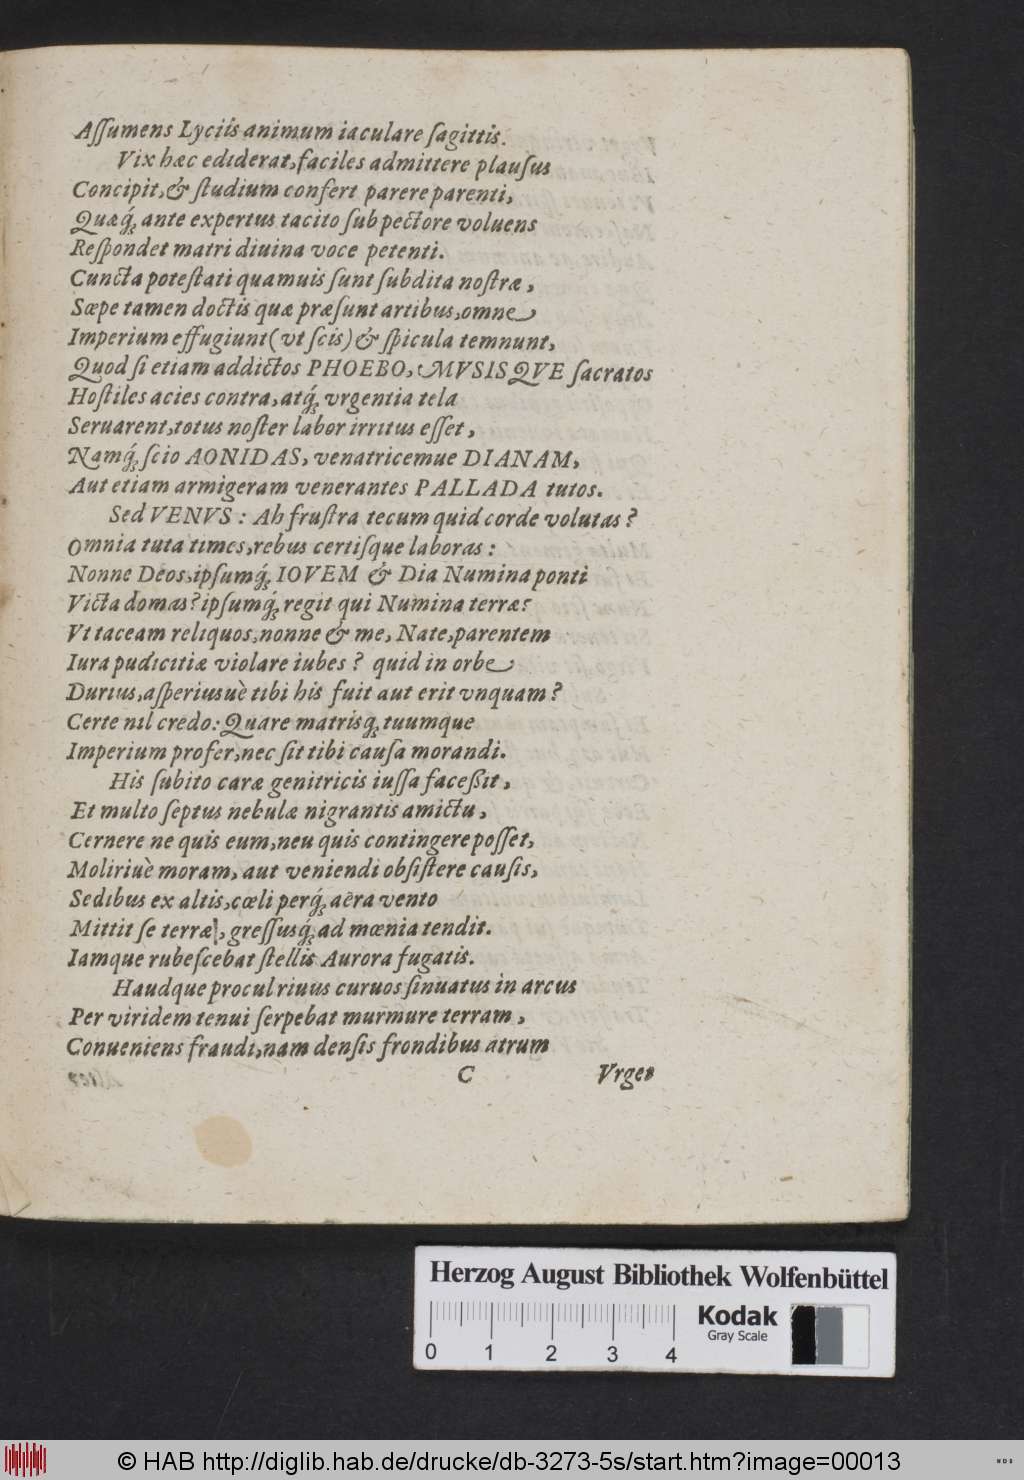 Aſſumens Lyciis animum iaculare ſagittis.
Vix hæc ediderat, faciles admittere plauſus
Concipit, & ſtudium confert parere parenti,
Quæq́; ante expertus tacito ſub pectore voluens
Reſpondet matri diuina voce petenti.
Cuncta poteſtati quamuis ſunt ſubdita noſtræ,
Sæpe tamen doctis quæ præſunt artibus, omne
Imperium effugiunt (vt ſcis) & ſpicula temnunt,
Quod ſi etiam addictos PHOEBO, MVSISQVE ſacratos
Hoſtiles acies contra, atq́; vrgentia tela
Seruarent, totus noſter labor irritus eſſet,
Namq́; ſcio AONIDAS, venatricemue DIANAM,
Aut etiam armigeram venerantes PALLADA tutos.
Sed VENVS: Ah fruſtra tecum quid corde volutas?
Omnia tuta times, rebus certiſque laboras:
Nonne Deos, ipſumq́; IOVEM & Dia Numina ponti
Victa domas? ipſumq́; regit qui Numina terræ?
Vt taceam reliquos, nonne & me, Nate, parentem
Iura pudicitiæ violare iubes? quid in orbe
Durius, aſperiusuè tibi his fuit aut erit vnquam?
Certe nil credo: Quare matrisq; tuumque
Imperium profer, nec ſit tibi cauſa morandi.
His ſubito caræ genitricis iuſſa faceßit,
Et multo ſeptus nebulæ nigrantis amictu,
Cernere ne quis eum, neu quis contingere poſſet,
Moliriuè moram, aut veniendi obſiſtere cauſis,
Sedibus ex altis, cœli perq́; aëra vento
Mittit ſe terræ, greſſusq́; ad mœnia tendit.
Iamque rubeſcebat ſtellis Aurora fugatis.
Haudque procul riuus curuos ſinuatus in arcus
Per viridem tenui ſerpebat murmure terram,
Conueniens fraudi, nam denſis frondibus atrum
C Vrget
Herzog August Bibliothek Wolfenbüttel
Kodak
Gray Scale
0 1 2 3 4
© HAB http://diglib.hab.de/drucke/db-3273-5s/start.htm?image=00013